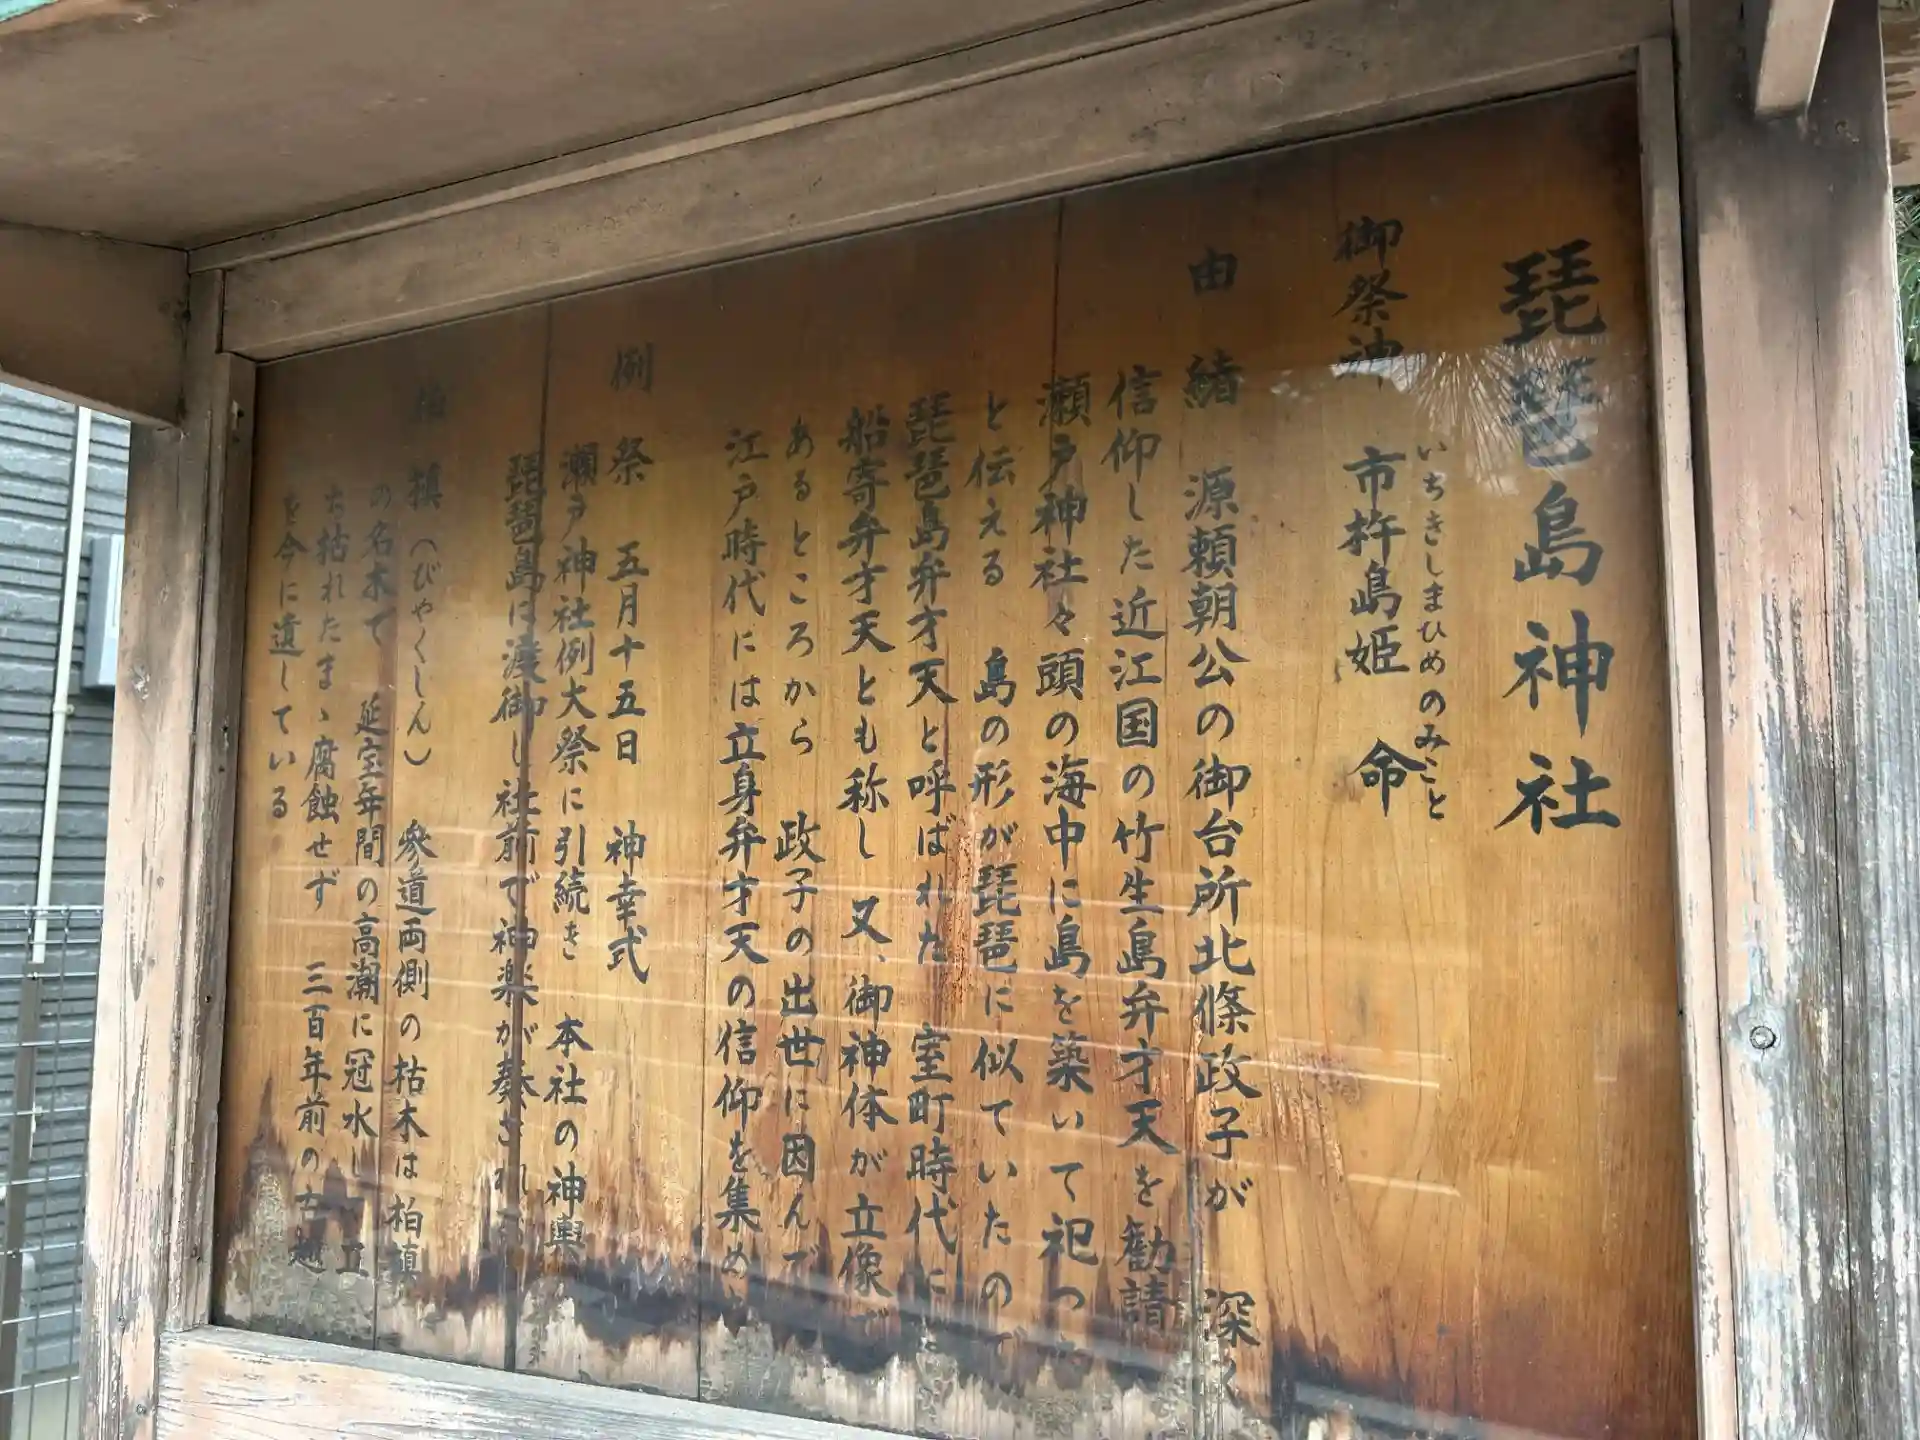 琵琶島神社
御祭神 市杵島姫 命
いちきしまひめのみこと
由 緒 源頼朝公の御台所北條政子が 深く
信仰した近江国の竹生島弁才天を勧請
瀬戸神社々頭の海中に島を築いて祀った
と伝える 島の形が琵琶に似ていたので
琵琶島弁才天と呼ばれた 室町時代に
船寄弁才天とも称し 又、御神体が立像で
あるところから 政子の出世に因んで
江戸時代には立身弁才天の信仰を集め
例 祭 五月十五日 神幸式
瀬戸神社例大祭に引続き 本社の神輿
琵琶島に渡御し社前で神楽が奏され
槇(びゃくしん) 参道両側の枯木は柏槇
の名木で 延宝年間の高潮に冠水し 立
ち枯れたまゝ腐蝕せず 三百年前の
を今に遺している